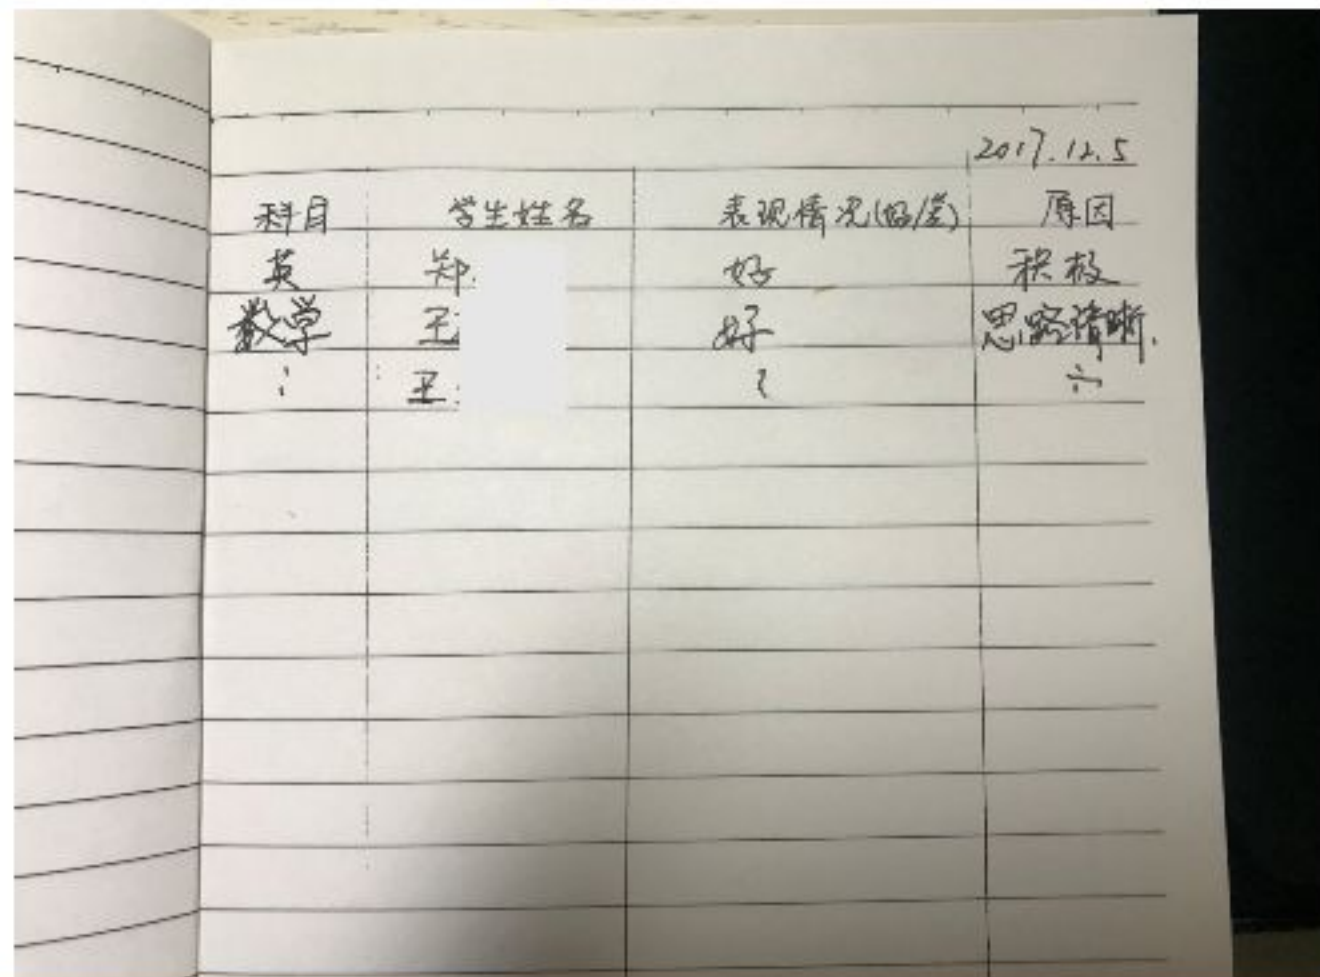 2017.12.5
科目 学生姓名 表现情况(好/差) 原因
英 郑 好 积极
数学 王 好 思路清晰.
王